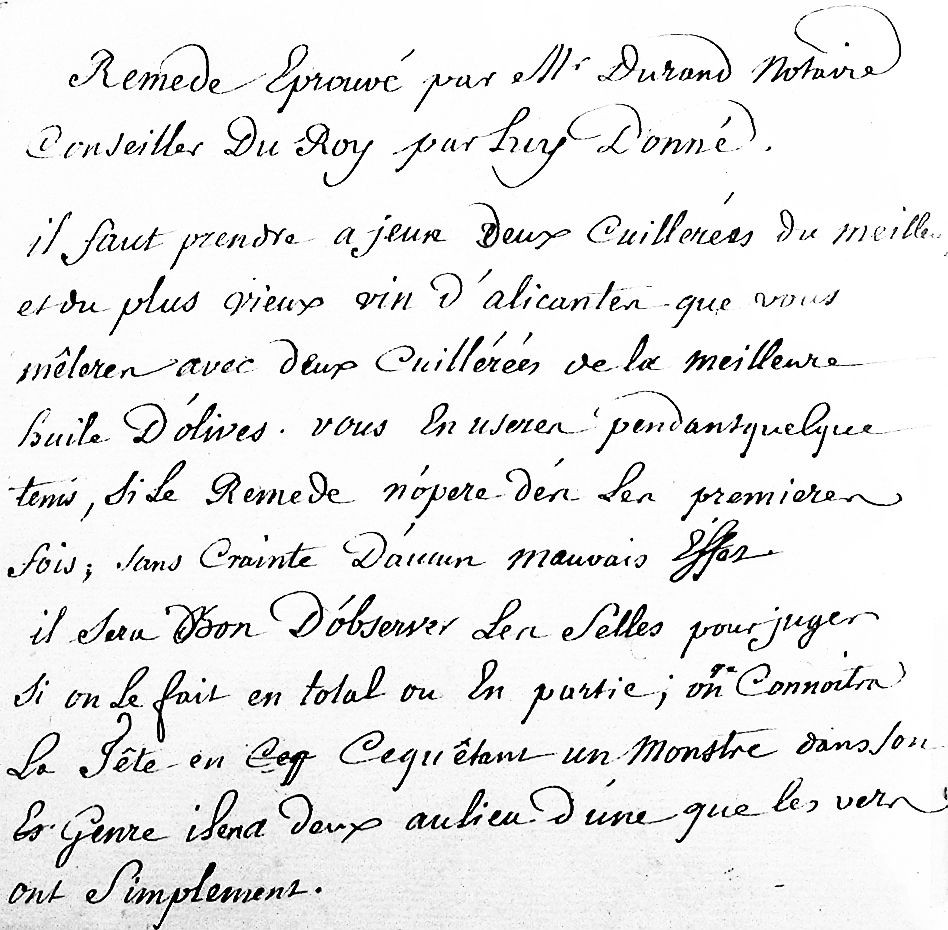 Remede Eprouvé par Mr Durand Notaire
Conseiller Du Roy par Luy Donné.
il faut prendre a jeun Deux Cuillerées du meilleu
et du plus vieux vin d'alicanter que vous
mêlerez avec deux Cuillérées de la meilleure
huile D'olives. vous En userez pendant quelque
tems, si Le Remede n'opere dès Les premieres
fois; sans Crainte D'aucun mauvais Effet
il sera Bon D'observer Les Selles pour juger
si on Le fait en total ou En partie; on Connoitra
La Tête en Ce qu'êtant un Monstre dans son
Genre il en a deux au lieu d'une que les vers
ont Simplement.